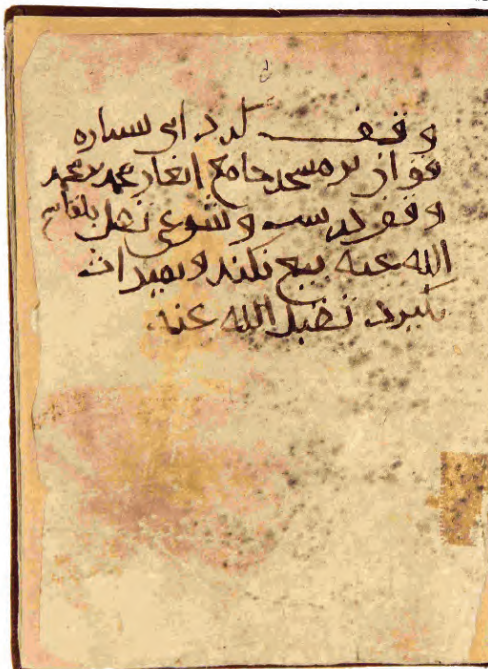 وقف کرد این سباره
قران بر مسجد جامع محمد بن محمد
وقف درست و شرعی تقبل بلقاسم
الله عنه بیع نکند و بمیراث
نگیرد تقبل الله عنه